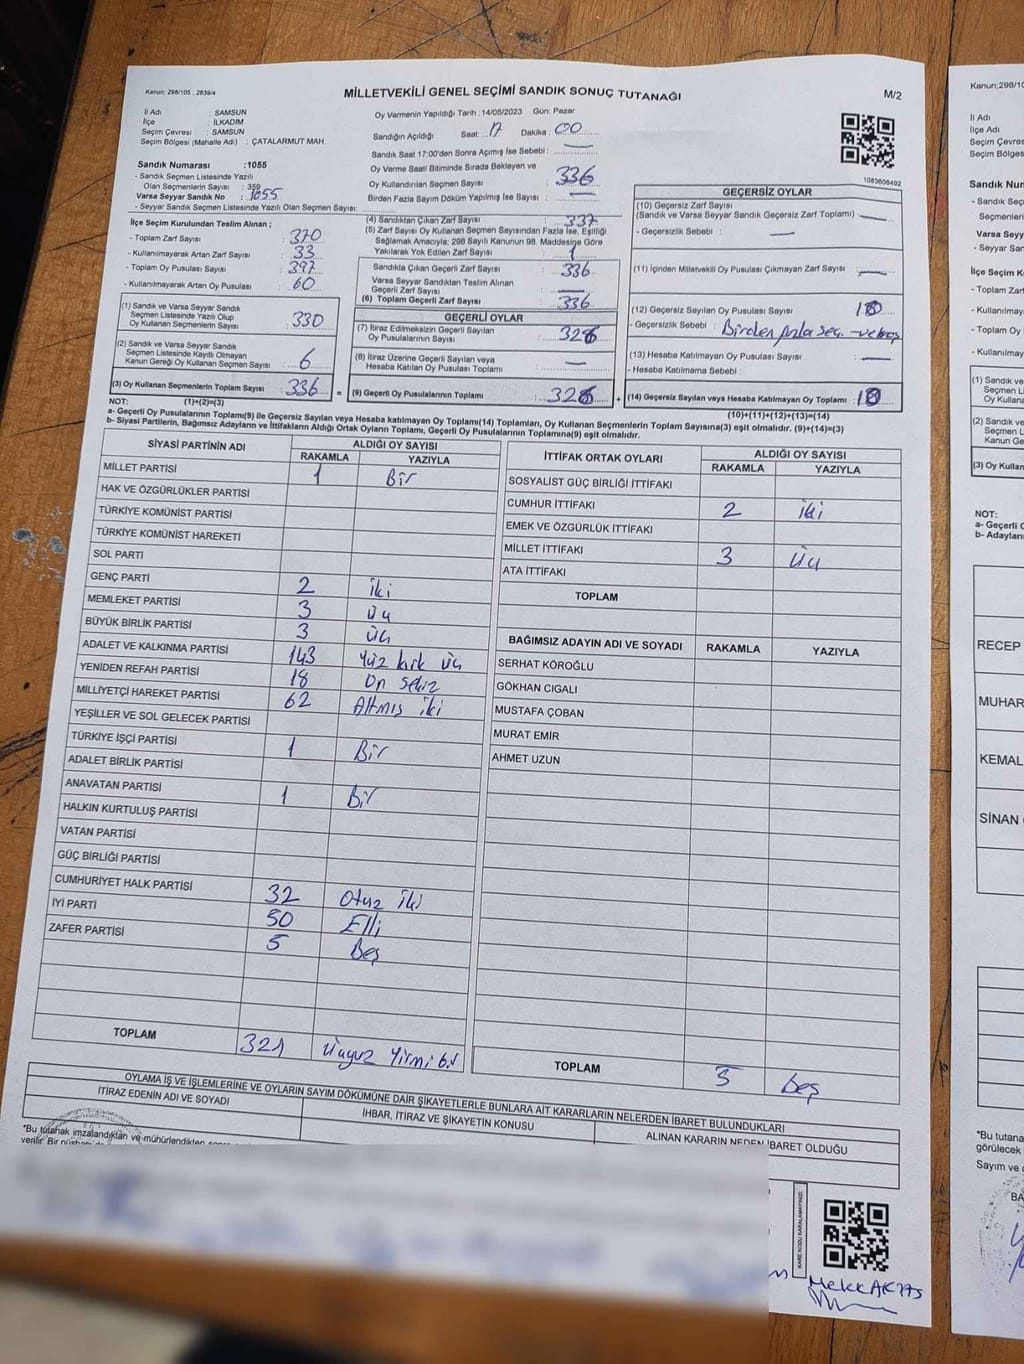 Kanun: 298/105 , 2839/4
MİLLETVEKİLİ GENEL SEÇİMİ SANDIK SONUÇ TUTANAĞI
M/2
İl Adı : SAMSUN
İlçe : İLKADIM
Seçim Çevresi : SAMSUN
Seçim Bölgesi (Mahalle Adı) : ÇATALARMUT MAH.
Sandık Numarası :1055
- Sandık Seçmen Listesinde Yazılı
Olan Seçmenlerin Sayısı : 359
Varsa Seyyar Sandık No : 1055
- Seyyar Sandık Seçmen Listesinde Yazılı Olan Seçmen Sayısı:
İlçe Seçim Kurulundan Teslim Alınan ;
- Toplam Zarf Sayısı : 370
- Kullanılmayarak Artan Zarf Sayısı : 33
- Toplam Oy Pusulası Sayısı : 397
- Kullanılmayarak Artan Oy Pusulası : 60
(1) Sandık ve Varsa Seyyar Sandık
Seçmen Listesinde Yazılı Olup
Oy Kullanan Seçmenlerin Sayısı : 330
(2) Sandık ve Varsa Seyyar Sandık
Seçmen Listesinde Kayıtlı Olmayan
Kanun Gereği Oy Kullanan Seçmen Sayısı : 6
(3) Oy Kullanan Seçmenlerin Toplam Sayısı : 336 =
Oy Vermenin Yapıldığı Tarih : 14/05/2023 Gün: Pazar
Sandığın Açıldığı Saat: 17 Dakika : 00
Sandık Saat 17:00'den Sonra Açımış İse Sebebi : —
Oy Verme Saati Bitiminde Sırada Bekleyen ve
Oy Kullandırılan Seçmen Sayısı : 336
Birden Fazla Sayım Döküm Yapılmış İse Sayısı : —
(4) Sandıktan Çıkan Zarf Sayısı : 337
(5) Zarf Sayısı Oy Kullanan Seçmen Sayısından Fazla İse, Eşitliği
Sağlamak Amacıyla; 298 Sayılı Kanunun 98. Maddesine Göre
Yakılarak Yok Edilen Zarf Sayısı : 1
Sandıkta Çıkan Geçerli Zarf Sayısı : 336
Varsa Seyyar Sandıktan Teslim Alınan
Geçerli Zarf Sayısı : —
(6) Toplam Geçerli Zarf Sayısı : 336
GEÇERLİ OYLAR
(7) İtiraz Edilmeksizin Geçerli Sayılan
Oy Pusulalarının Sayısı : 326
(8) İtiraz Üzerine Geçerli Sayılan veya
Hesaba Katılan Oy Pusulası Toplamı : —
(9) Geçerli Oy Pusulalarının Toplamı : 326 +
1083606492
GEÇERSİZ OYLAR
(10) Geçersiz Zarf Sayısı
(Sandık ve Varsa Seyyar Sandık Geçersiz Zarf Toplamı) : —
- Geçersizlik Sebebi : —
(11) İçinden Milletvekili Oy Pusulası Çıkmayan Zarf Sayısı : —
(12) Geçersiz Sayılan Oy Pusulası Sayısı : 10
- Geçersizlik Sebebi : Birden fazla seç.
(13) Hesaba Katılmayan Oy Pusulası Sayısı : —
- Hesaba Katılmama Sebebi :
(14) Geçersiz Sayılan veya Hesaba Katılmayan Oy Toplamı : 10
NOT: (1)+(2)=(3)
(10)+(11)+(12)+(13)=(14)
a- Geçerli Oy Pusulalarının Toplam(9) ile Geçersiz Sayılan veya Hesaba katılmayan Oy Toplamı(14) Toplamları, Oy Kullanan Seçmenlerin Toplam Sayısına(3) eşit olmalıdır. (9)+(14)=(3)
b- Siyasi Partilerin, Bağımsız Adayların ve İttifakların Aldığı Ortak Oyların Toplamı, Geçerli Oy Pusulalarının Toplamına(9) eşit olmalıdır.
SİYASİ PARTİNİN ADI ALDIĞI OY SAYISI
RAKAMLA YAZIYLA
MİLLET PARTİSİ 1 Bir
HAK VE ÖZGÜRLÜKLER PARTİSİ
TÜRKİYE KOMÜNİST PARTİSİ
TÜRKİYE KOMÜNİST HAREKETİ
SOL PARTİ
GENÇ PARTİ 2 iki
MEMLEKET PARTİSİ 3 üç
BÜYÜK BİRLİK PARTİSİ 3 üç
ADALET VE KALKINMA PARTİSİ 143 Yüz kırk üç
YENİDEN REFAH PARTİSİ 18 On sekiz
MİLLİYETÇİ HAREKET PARTİSİ 62 Altmış iki
YEŞİLLER VE SOL GELECEK PARTİSİ
TÜRKİYE İŞÇİ PARTİSİ 1 Bir
ADALET BİRLİK PARTİSİ
ANAVATAN PARTİSİ 1 Bir
HALKIN KURTULUŞ PARTİSİ
VATAN PARTİSİ
GÜÇ BİRLİĞİ PARTİSİ
CUMHURİYET HALK PARTİSİ 32 Otuz iki
İYİ PARTİ 50 Elli
ZAFER PARTİSİ 5 Beş
TOPLAM 321 üçyüz Yirmi bir
İTTİFAK ORTAK OYLARI ALDIĞI OY SAYISI
RAKAMLA YAZIYLA
SOSYALİST GÜÇ BİRLİĞİ İTTİFAKI
CUMHUR İTTİFAKI 2 iki
EMEK VE ÖZGÜRLÜK İTTİFAKI
MİLLET İTTİFAKI 3 üç
ATA İTTİFAKI
TOPLAM
BAĞIMSIZ ADAYIN ADI VE SOYADI RAKAMLA YAZIYLA
SERHAT KÖROĞLU
GÖKHAN CIGALI
MUSTAFA ÇOBAN
MURAT EMİR
AHMET UZUN
TOPLAM 5 beş
OYLAMA İŞ VE İŞLEMLERİNE VE OYLARIN SAYIM DÖKÜMÜNE DAİR ŞİKAYETLERLE BUNLARA AİT KARARLARIN NELERDEN İBARET BULUNDUKLARI
İTİRAZ EDENİN ADI VE SOYADI
İHBAR, İTİRAZ VE ŞİKAYETİN KONUSU
ALINAN KARARIN NEDEN İBARET OLDUĞU
"Bu tutanak imzalandıktan ve mühürlendikten
verilir. Bir
KARE KODU KARALAMAYINIZ!
Kanun;298/10
İl Adı
İlçe Adı
Seçim Çevresi
Seçim Bölgesi
Sandık Num
- Sandık Seç
Seçmenleri
Varsa Seyy
- Seyyar San
İlçe Seçim K
- Toplam Zarf
- Kullanılmaya
- Toplam Oy
- Kullanılmay
(1) Sandık ve
Seçmen Li
Oy Kullana
(2) Sandık ve
Seçmen L
(3) Oy Kullan
NOT:
a- Geçerli O
b- Adayların
RECEP
MUHAR
KEMAL
SİNAN
"Bu tutana
görülecek
Sayım ve
BA